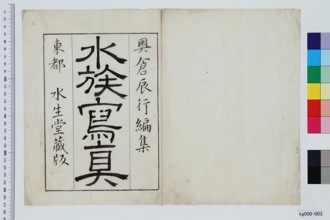 奥倉辰行編集
水族寫真
東都　水生堂藏版
kg000-003